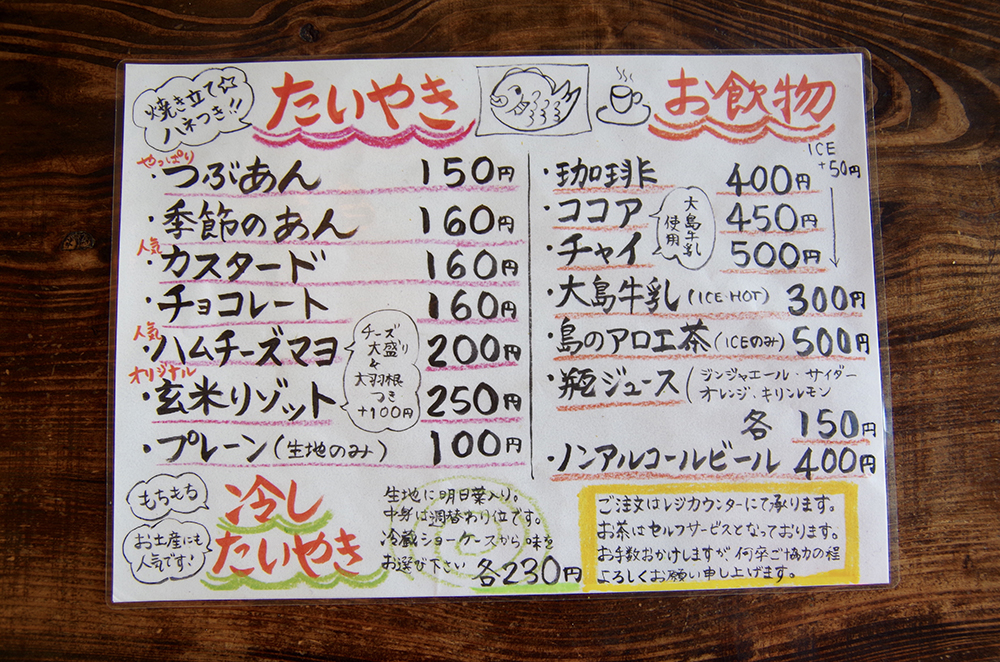 焼き立て☆
ハネつき!!
たいやき
やっぱり
・つぶあん 150円
・季節のあん 160円
人気
・カスタード 160円
・チョコレート 160円
人気
・ハムチーズマヨ 200円
オリジナル
・玄米リゾット 250円
チーズ
大盛り
&
大羽根
つき
+100円
・プレーン(生地のみ) 100円
お飲物
ICE
+50円
・珈琲 400円
・ココア 450円
・チャイ 500円
大島牛乳
使用
・大島牛乳(ICE・HOT) 300円
・島のアロエ茶(ICEのみ) 500円
・瓶ジュース(ジンジャエール・サイダー
オレンジ・キリンレモン
各 150円
・ノンアルコールビール 400円
もちもち
お土産にも
人気です!
冷し
たいやき
生地に明日葉入り。
中身は週替わり位です。
冷蔵ショーケースから味を
お選び下さい 各230円
ご注文はレジカウンターにて承ります。
お茶はセルフサービスとなっております。
お手数おかけしますが何卒ご協力の程
よろしくお願い申し上げます。